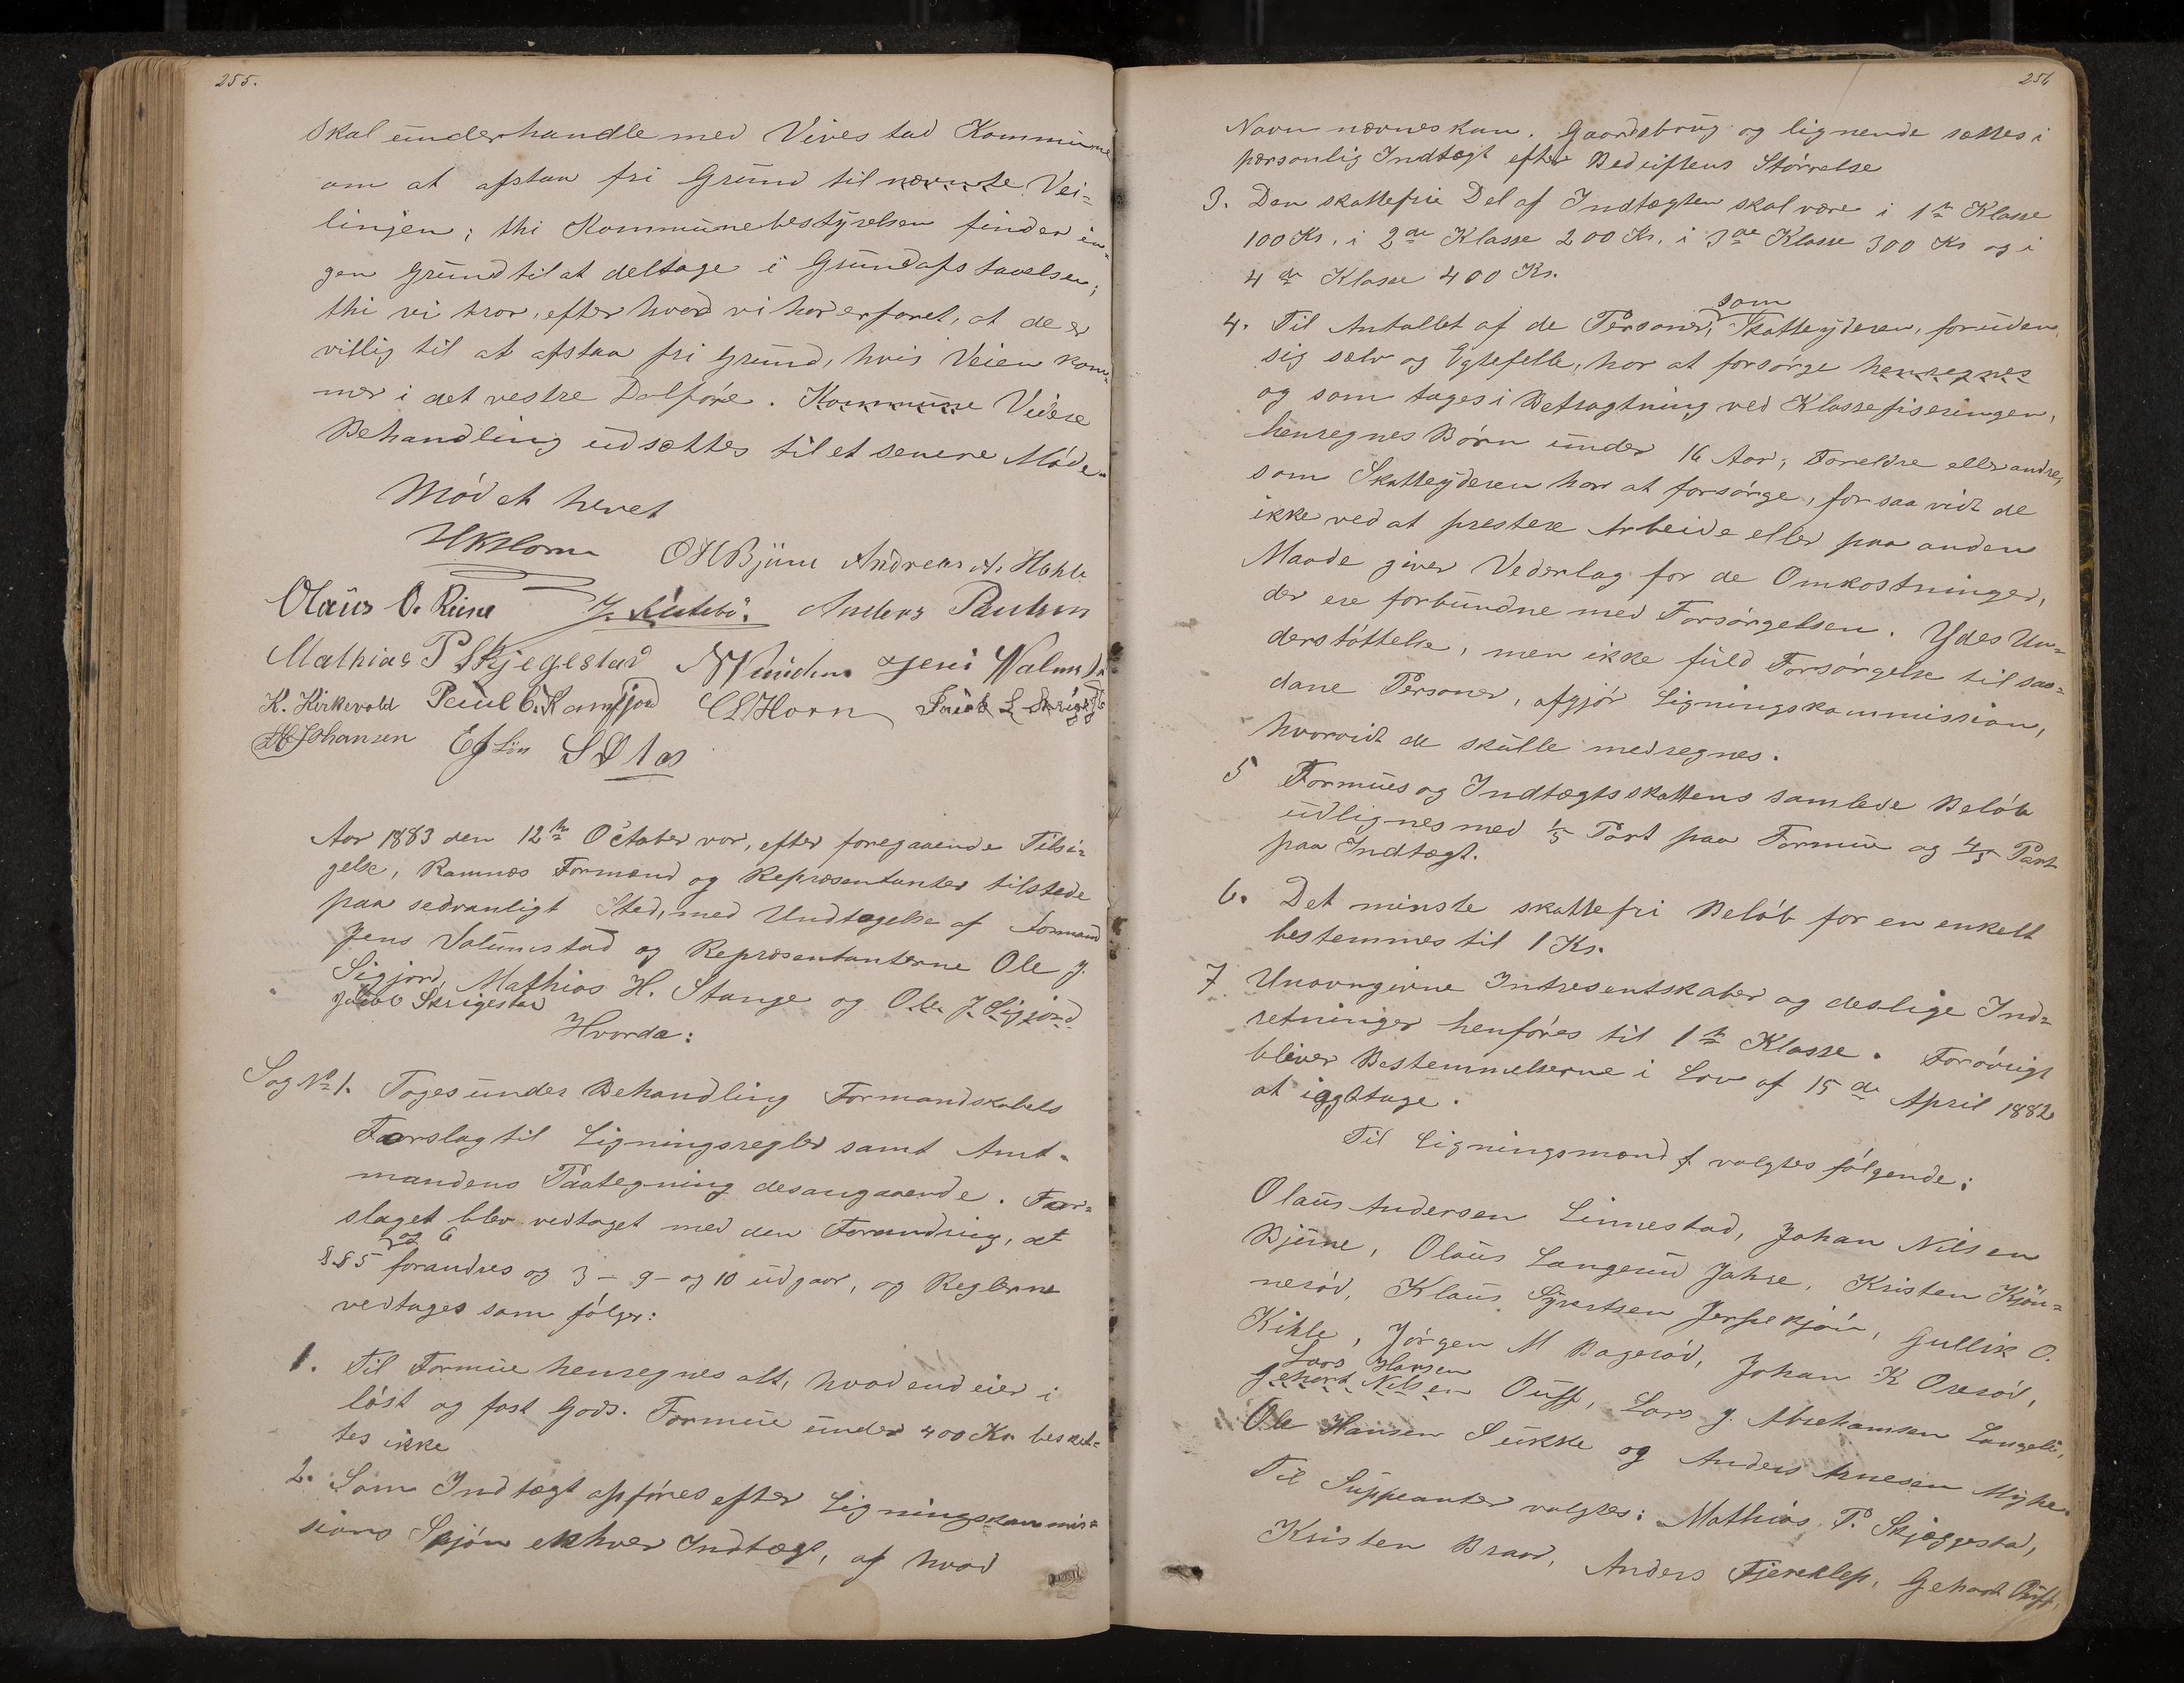 255.
Skal underhandle med Vivestad Kommune
om at afstaa fri Grund til nævnte Vei-
linjen; thi Kommunebestyrelsen finder in-
gen Grund til at deltage i Grundafstaaelsen;
thi vi tror, efter hvad vi har erfaret, at de er
villig til at afstaa fri Grund, hvis Veien kom-
mer i det vestre Dalføre. Kommune Videre
Behandling udsættes til et senere Møde.
Mødet hevet
HKHorn OHBjune Andreas A. Hehle
Olaus O. Reine Anders Paulsen
Mathias P Skjegestad Jens
K. Kirkevold Paul C. Ramfjord CLHorn
Johansen
Aar 1883 den 12te October var, efter foregaaende Tilsi-
gelse, Ramnæs Formænd og Repræsentanter tilstede
paa sedvanligt Sted, med Undtagelse af Formand
Jens Valumstad og Repræsentanterne Ole J.
Sigjord, Mathias H. Stange og Ole J Sigjord
Jakob Skrigestad
Hvorda:
Sag No 1. Toges under Behandling Formandskabets
Forslag til Ligningsregler samt Amt-
mandens Paategning desangaaende. For-
slaget blev vedtaget med den Forandring, at
og 6
§§5 forandres og 3 – 9 – og 10 udgaar, og Reglerne
vedtages som følger:
1. Til Formue henregnes alt, hvad end eies i
løst og fast Gods. Formue under 400 Kr. beskat-
tes ikke
2. Som Indtægt opføres efter Ligningskommis-
sions Skjøn enhver Indtægt, af hvad
256
Navn nævnes kan. Gaardsbrug og lignende sættes i
personlig Indtægt efter Bedriftens Størrelse
3. Den skattefrie Del af Indtægten skal være i 1te Klasse
100 Kr., i 2de Klasse 200 Kr. i 3de Klasse 300 Kr og i
4de Klasse 400 Kr.
som
4. Til Antallet af de Personer, Skatteyderen, foruden
sig selv og Egtefelle, har at forsørge henregnes
og som tages i Betragtning ved Klassefiseringen,
henregnes Børn under 16 Aar, Foreldre eller andre,
som Skatteyderen har at forsørge, forsaavidt de
ikke ved at prestere Arbeide eller paa anden
Maade giver Vederlag for de Omkostninger,
der ere forbundne med Forsørgelsen. Ydes Un-
derstøttelse, men ikke fuld Forsørgelse til saa-
dane Personer, afgjør Ligningskommission,
hvorvidt de skulle medregnes.
5 Formues og Indtægtsskattens samlede Beløb
udlignes med 1/5 Part paa Formue og 4/5 Part
paa Indtægt.
6. Det minste skattefri Beløb for en enkelt
bestemmes til 1 Kr.
7 Unavngivne Intresentskaber og deslige Ind-
retninger henføres til 1te Klasse. Forøvrigt
bliver Bestemmelserne i Lov af 15de April 1882
at iagttage.
Til Ligningsmænd f valgtes følgende:
Olaus Andersen Linnestad, Johan Nilsen
Bjune, Olaus Langerud Jahre, Kristen Kjøn-
nerød, Klaus Syvertsen Jerpekjøn, Gullik O.
Kihle, Jørgen M Bagerød, Johan K Oserød,
Lars Hansen
Gehart Nilsen Ouff, Lars J. Abrahamsen Langeli,
Ole Hansen Sukke og Anders Arnesen Myhre.
Til Suppeanter valgtes: Mathias P. Skjæggestad,
Kristen Braar, Anders Fjereklep, Gehart Ouff,